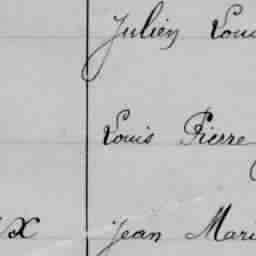 Julien Lou
Louis Pierre
X Jean Mari